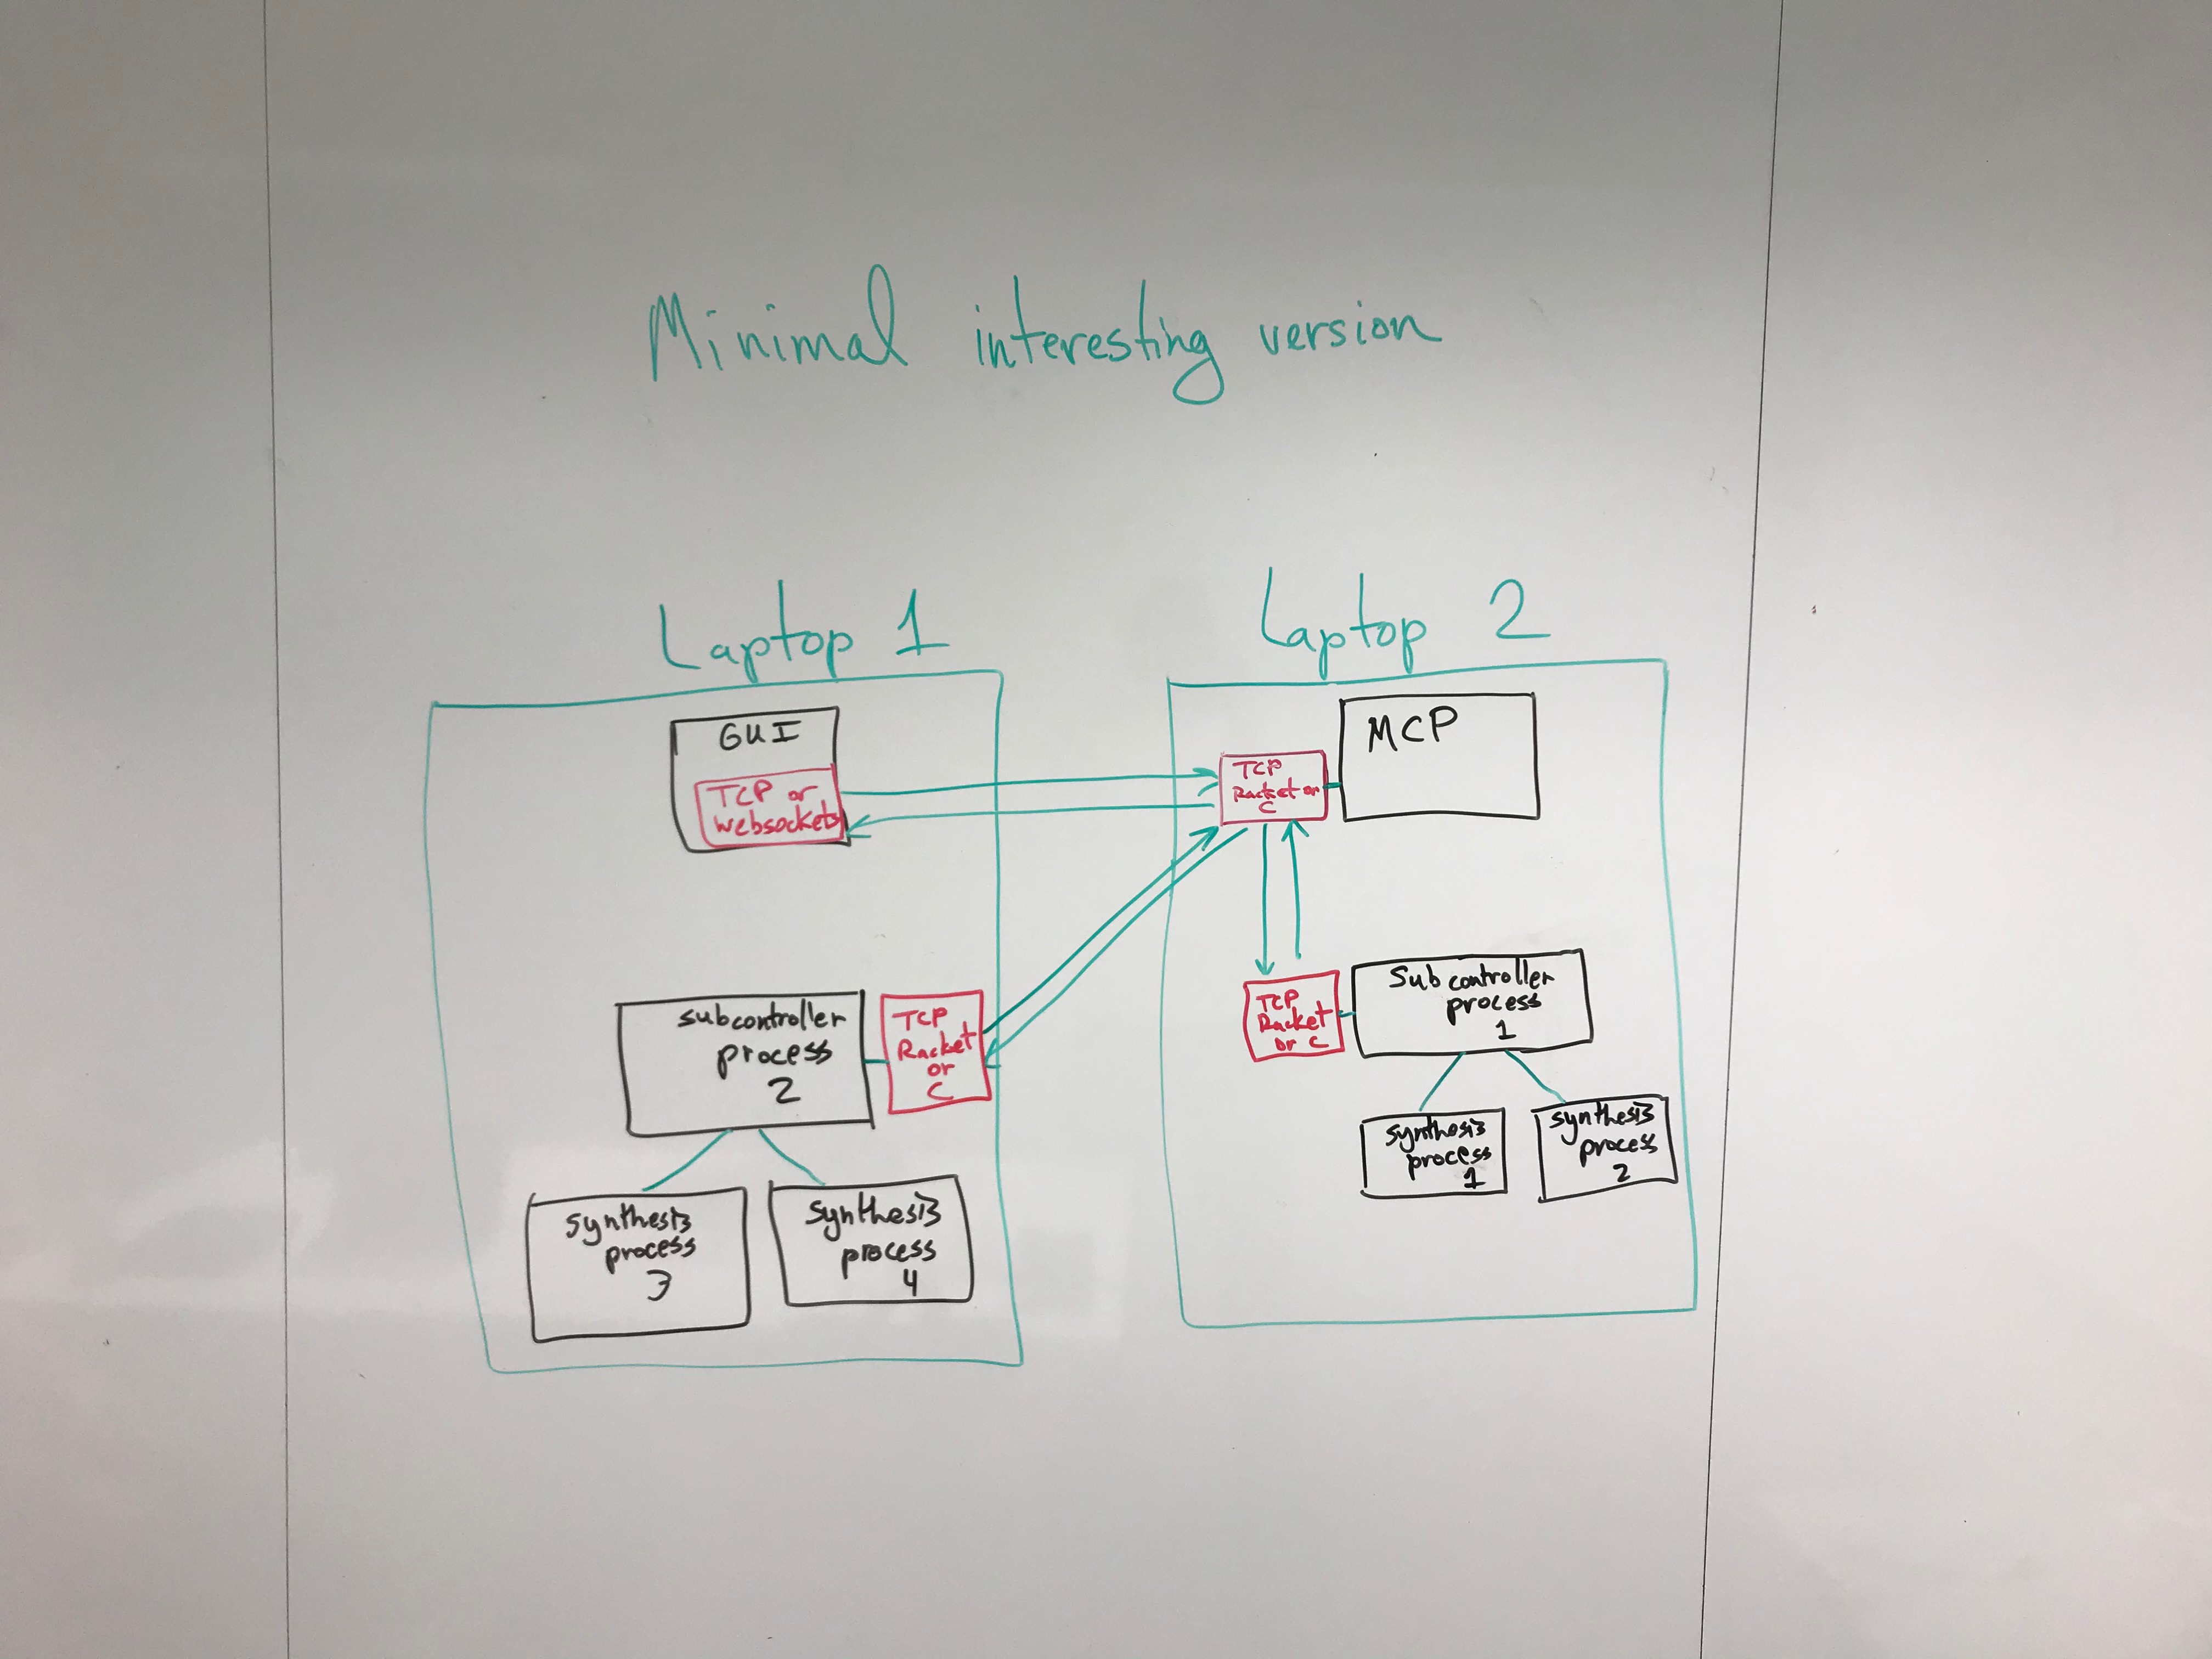 Minimal interesting version
Laptop 1
GUI
TCP or
websockets
subcontroller
process
2
TCP
Racket
or
C
synthesis
process
3
synthesis
process
4
Laptop 2
TCP
Racket or
C
MCP
TCP
Racket
or C
Subcontroller
process
1
synthesis
process
1
synthesis
process
2